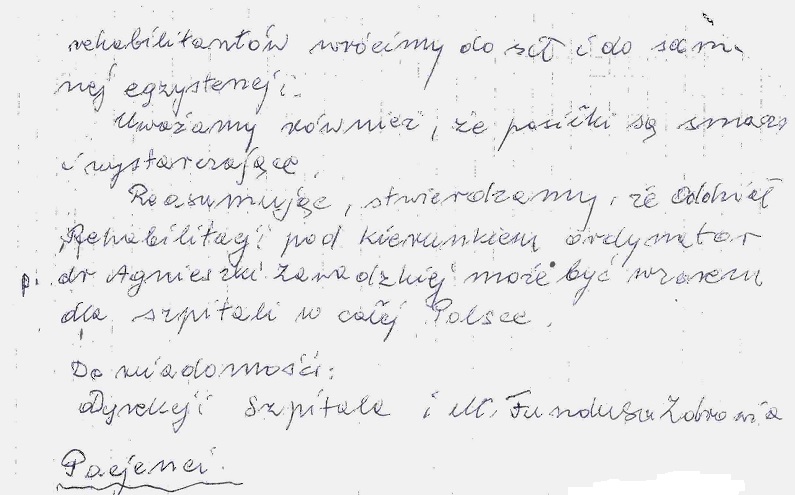 rehabilitantów wrócimy do sił i do sam
nej egzystencji.
Uważamy również, że posiłki są smacz
i wystarczające.
Reasumując, stwierdzamy, że Oddział
Rehabilitacji pod kierunkiem ordynator
p. dr Agnieszki Zawadzkiej może być wzorem
dla szpitali w całej Polsce.
Do wiadomości:
Dyrekcji Szpitala i N. Funduszu Zdrowia
Pacjenci.